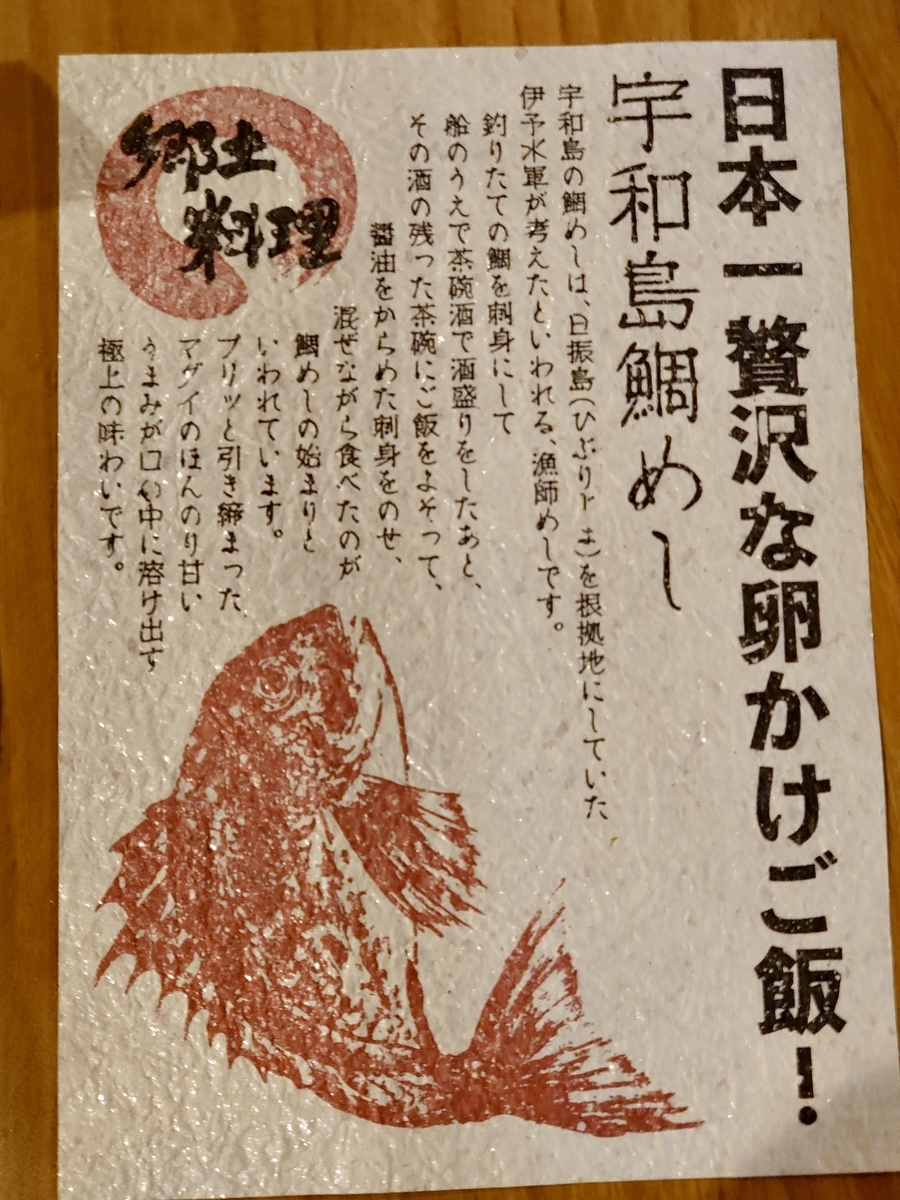 日本一贅沢な卵かけご飯!
宇和島鯛めし
宇和島の鯛めしは、日振島(ひぶりしま)を根拠地にしていた
伊予水軍が考えたといわれる、漁師めしです。
釣りたての鯛を刺身にして
船のうえで茶碗酒で酒盛りをしたあと、
その酒の残った茶碗にご飯をよそって、
醤油をからめた刺身をのせ、
混ぜながら食べたのが
鯛めしの始まりと
いわれています。
プリッと引き締まった、
マダイのほんのり甘い
うまみが口の中に溶け出す
極上の味わいです。
郷土
料理